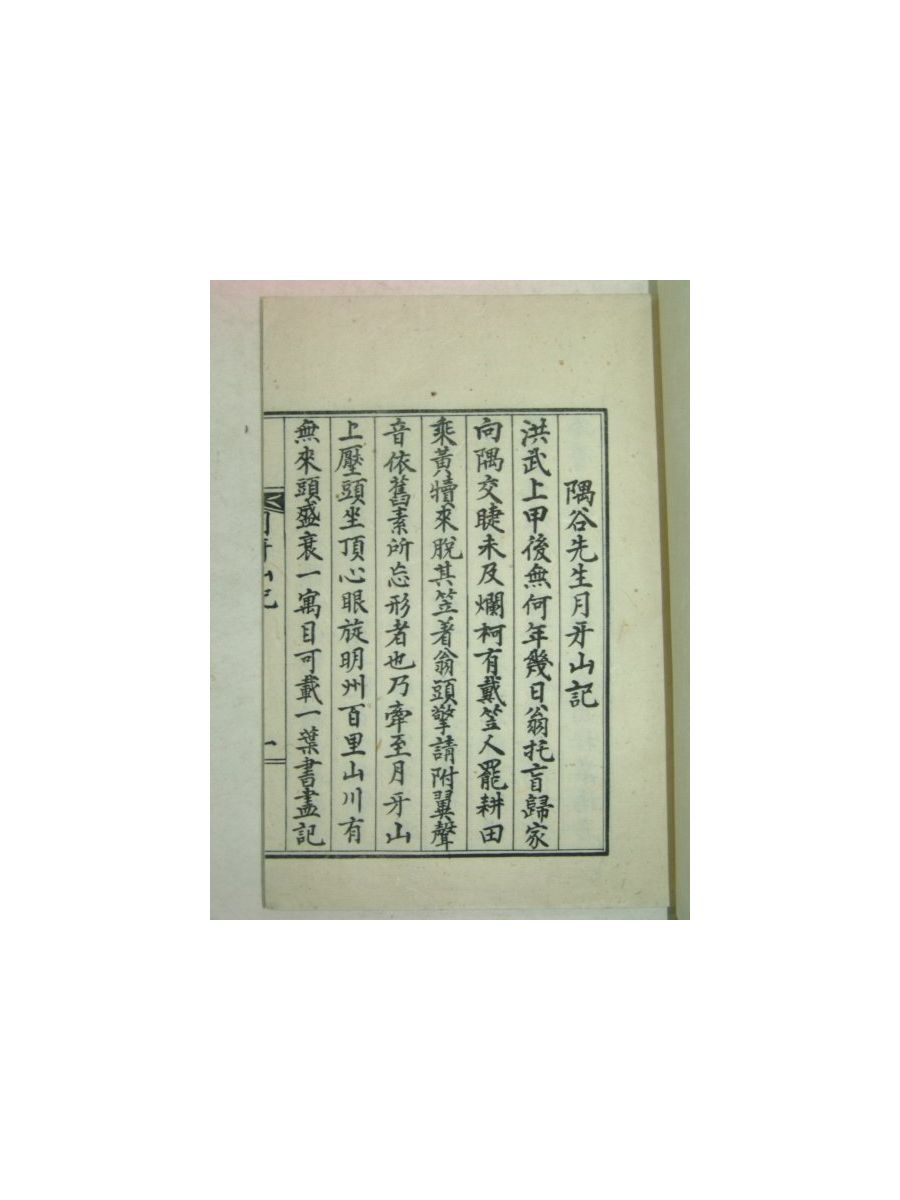 隅谷先生月牙山記
洪武上甲後無何年幾日翁托盲歸家
向隅交睫未及爛柯有戴笠人罷耕田
乘黃犢來脫其笠着翁頭擎請附翼聲
音依舊素所忘形者也乃牽至月牙山
上壓頭坐頂心眼旋明州百里山川有
無來頭盛衰一寓目可載一葉書盡記
月牙山記
一